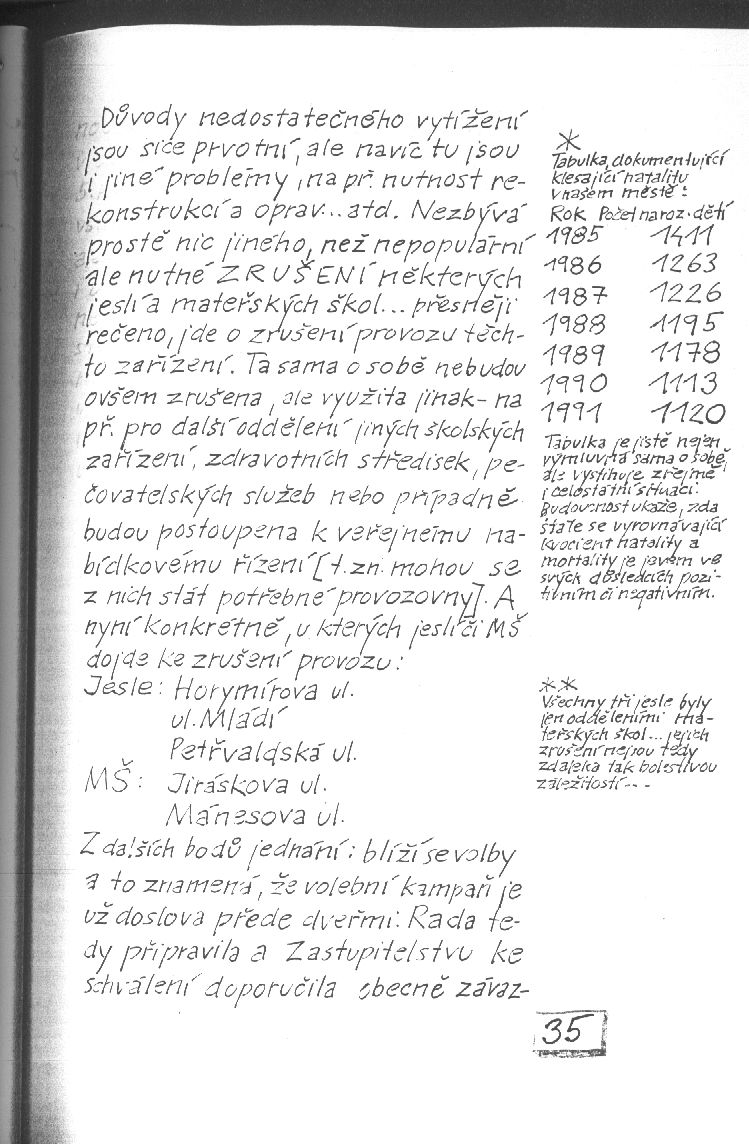 Důvody nedostatečného vytížení
jsou sice prvotní, ale navíc tu jsou
i jiné problémy, na př. nutnost re-
konstrukcí a oprav... atd. Nezbývá
prostě nic jiného, než nepopulární
ale nutné ZRUŠENÍ některých
jeslí a mateřských škol... přesněji
řečeno, jde o zrušení provozu těch-
to zařízení. Ta sama o sobě nebudou
ovšem zrušena, ale využita jinak - na
př. pro další oddělení jiných školských
zařízení, zdravotních středisek, pe-
čovatelských služeb nebo případně
budou postoupena k veřejnému na-
bídkovému řízení [t.zn. mohou se
z nich stát potřebné provozovny]. A
nyní konkrétně, u kterých jeslí či MŠ
dojde ke zrušení provozu:
Jesle: Horymírova ul.
ul. Mládí
Petřvaldská ul.
MŠ: Jiráskova ul.
Mánesova ul.
Z dalších bodů jednání: blíží se volby
a to znamená, že volební kampaň je
už doslova přede dveřmi. Rada te-
dy připravila a Zastupitelstvu ke
schválení doporučila obecně závaz-
*
Tabulka, dokumentující
klesající natalitu
v našem městě:
Rok Počet naroz. dětí
1985 1411
1986 1263
1987 1226
1988 1195
1989 1178
1990 1113
1991 1120
Tabulka je jistě nejen
výmluvná sama o sobě,
ale vystihuje zřejmě
i celostátní situaci.
Budoucnost ukáže, zda
stále se vyrovnávající
kvocient natality a
mortality je jevem ve
svých důsledcích pozi-
tivním či negativním.
**
Všechny tři jesle byly
jen odděleními ma-
teřských škol... jejich
zrušení nejsou tedy
zdaleka tak bolestivou
záležitostí...
35